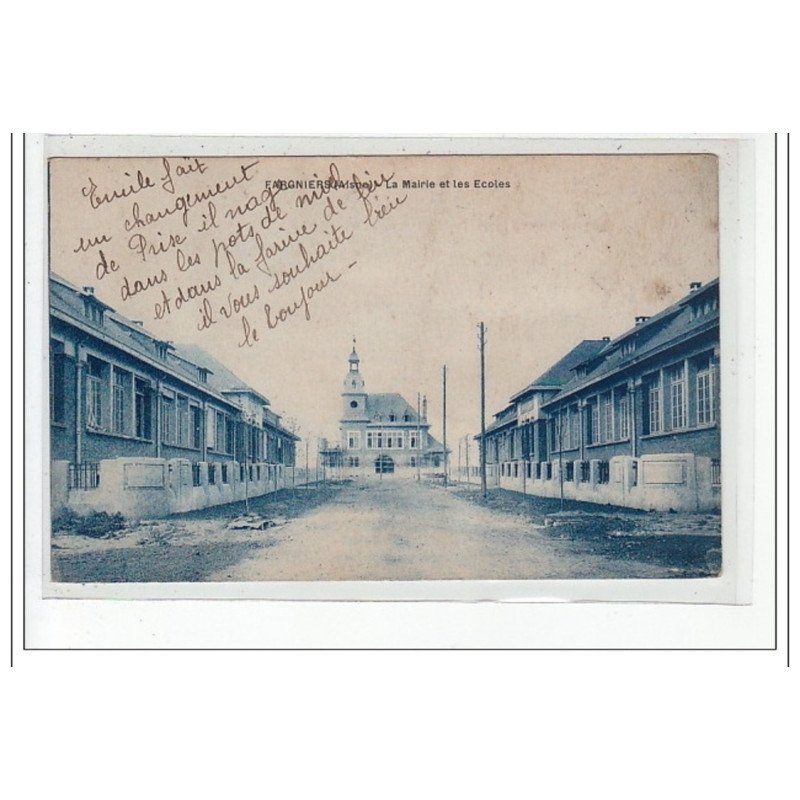 FARGNIERS (Aisne) - La Mairie et les Ecoles
Emile fait
un changement
de Prise il nage
dans les pots de miel
et dans la farine de lin
il vous souhaite bien
le bonjour -